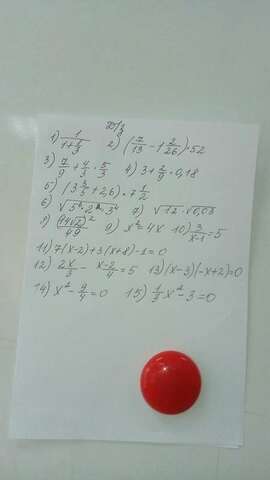 1) 1/(1+1/3) 2) (7/13 - 1 2/26)·52
3) 7/9 + 4/3 · 5/3 4) 3 + 2/9 · 0,18
5) (3 3/5 + 2,6) · 7 1/2
6) √(5⁴·2⁴·3²) 7) √12 · √0,03
8) (14√2)²/49 9) x² = 4x 10) 3/(x-1) = 5
11) 7(x-2)+3(x+8)-1=0
12) 2x/3 - (x-2)/4 = 5 13) (x-3)(-x+2)=0
14) x² - 9/4 = 0 15) 1/3 x² - 3 = 0